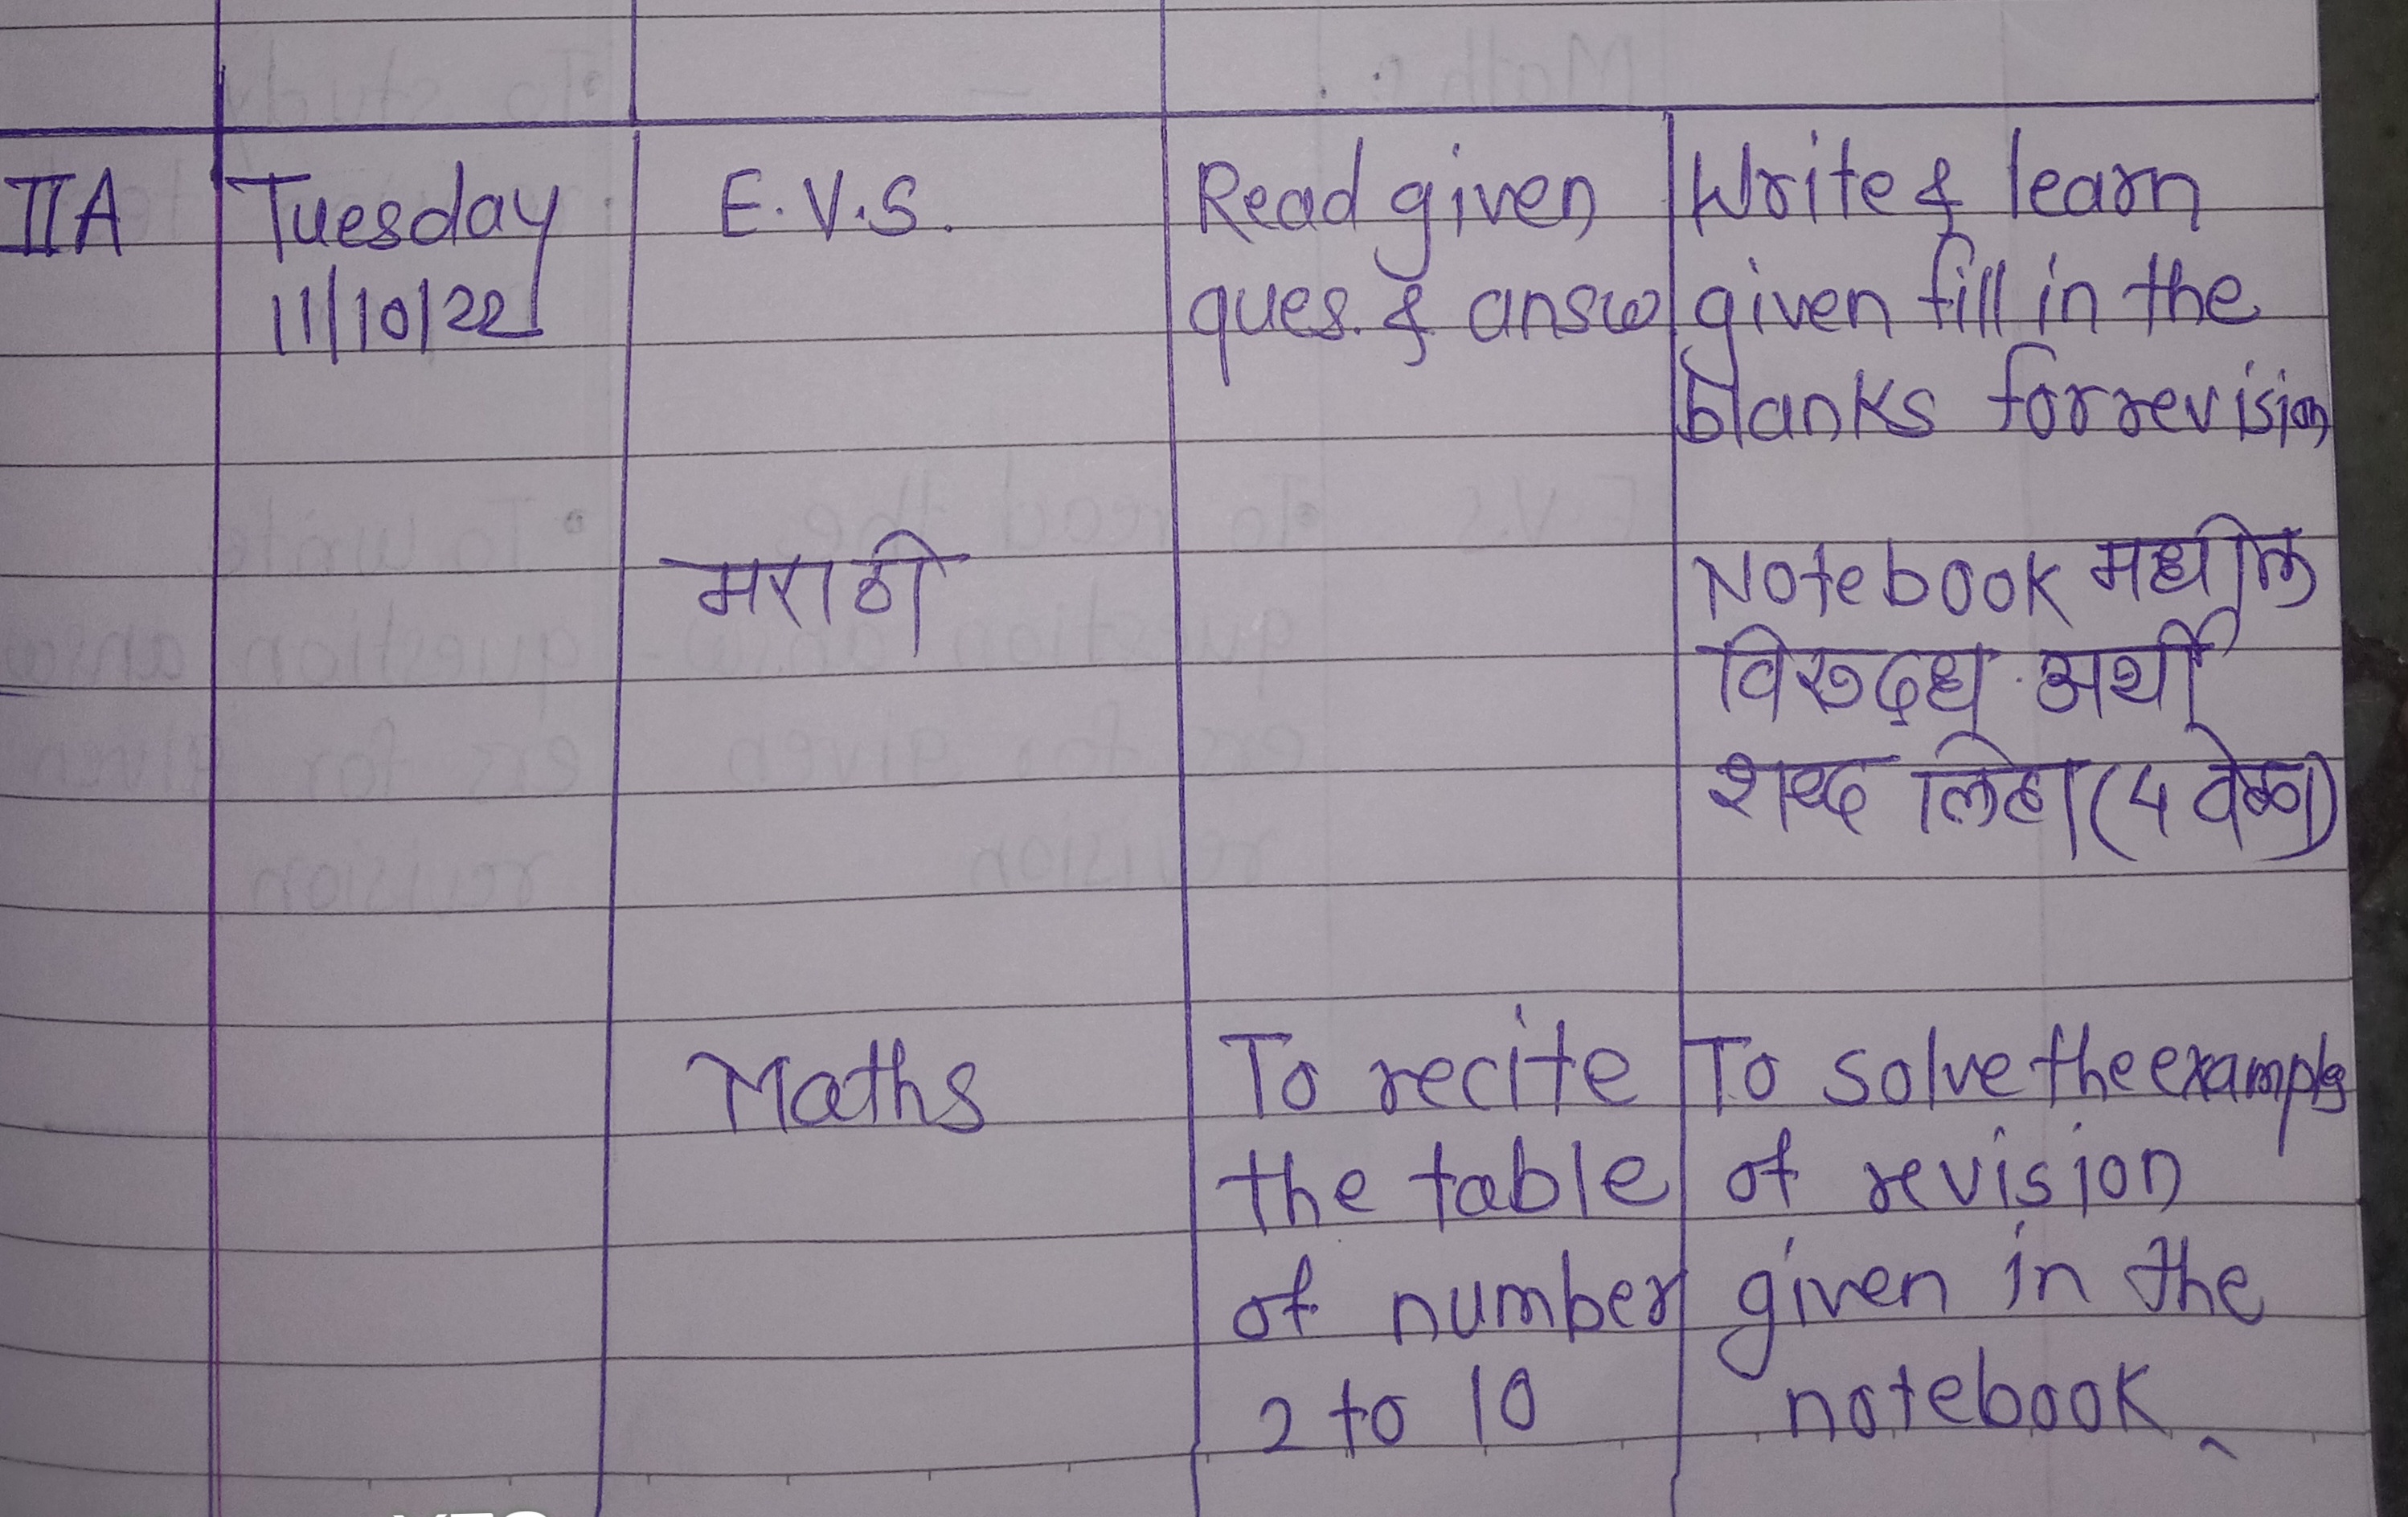 IIA Tuesday E.V.S. Read given Write & learn
11/10/22 ques. & answ given fill in the
blanks for revision
मराठी Notebook मधील
विरुद्ध अर्थी
शब्द लिहा (4 वेळा)
Maths To recite To solve the examples
the table of revision
of number given in the
2 to 10 notebook